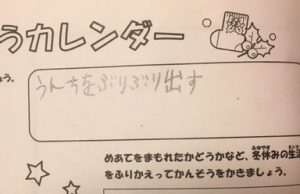 うカレンダー
ょう。
うんちをぶりぶり出す
めあてをまもれたかどうかなど、冬休みの生
をふりかえってかんそうをかきましょう。